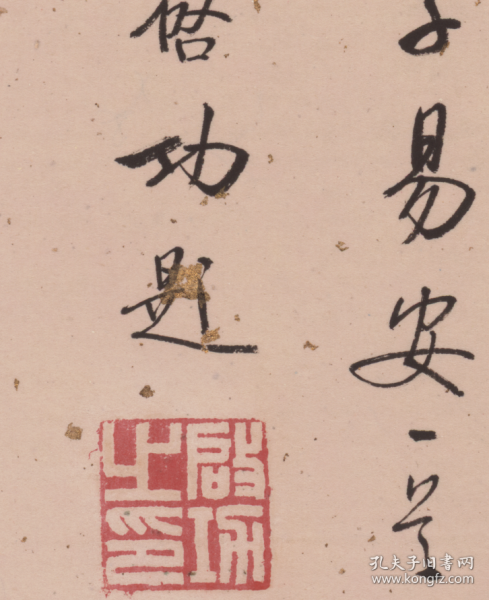 子易安一堂
启功题
启功之印
孔夫子旧书网
www.kongfz.com